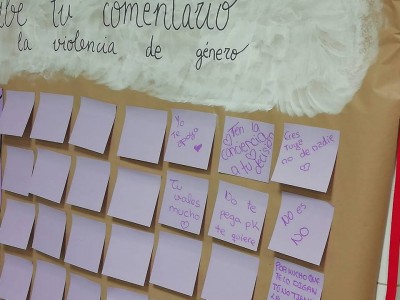 be tu comentario
la violencia de género
Yo
te
apoyo
Ten la
conciencia
a tu
decisión
Eres
Tuyo
no de nadie
Tu
vales
mucho
No te
pega pk
te quiere
NO es
NO
POR MUCHO QUE
TE LO DIGAN